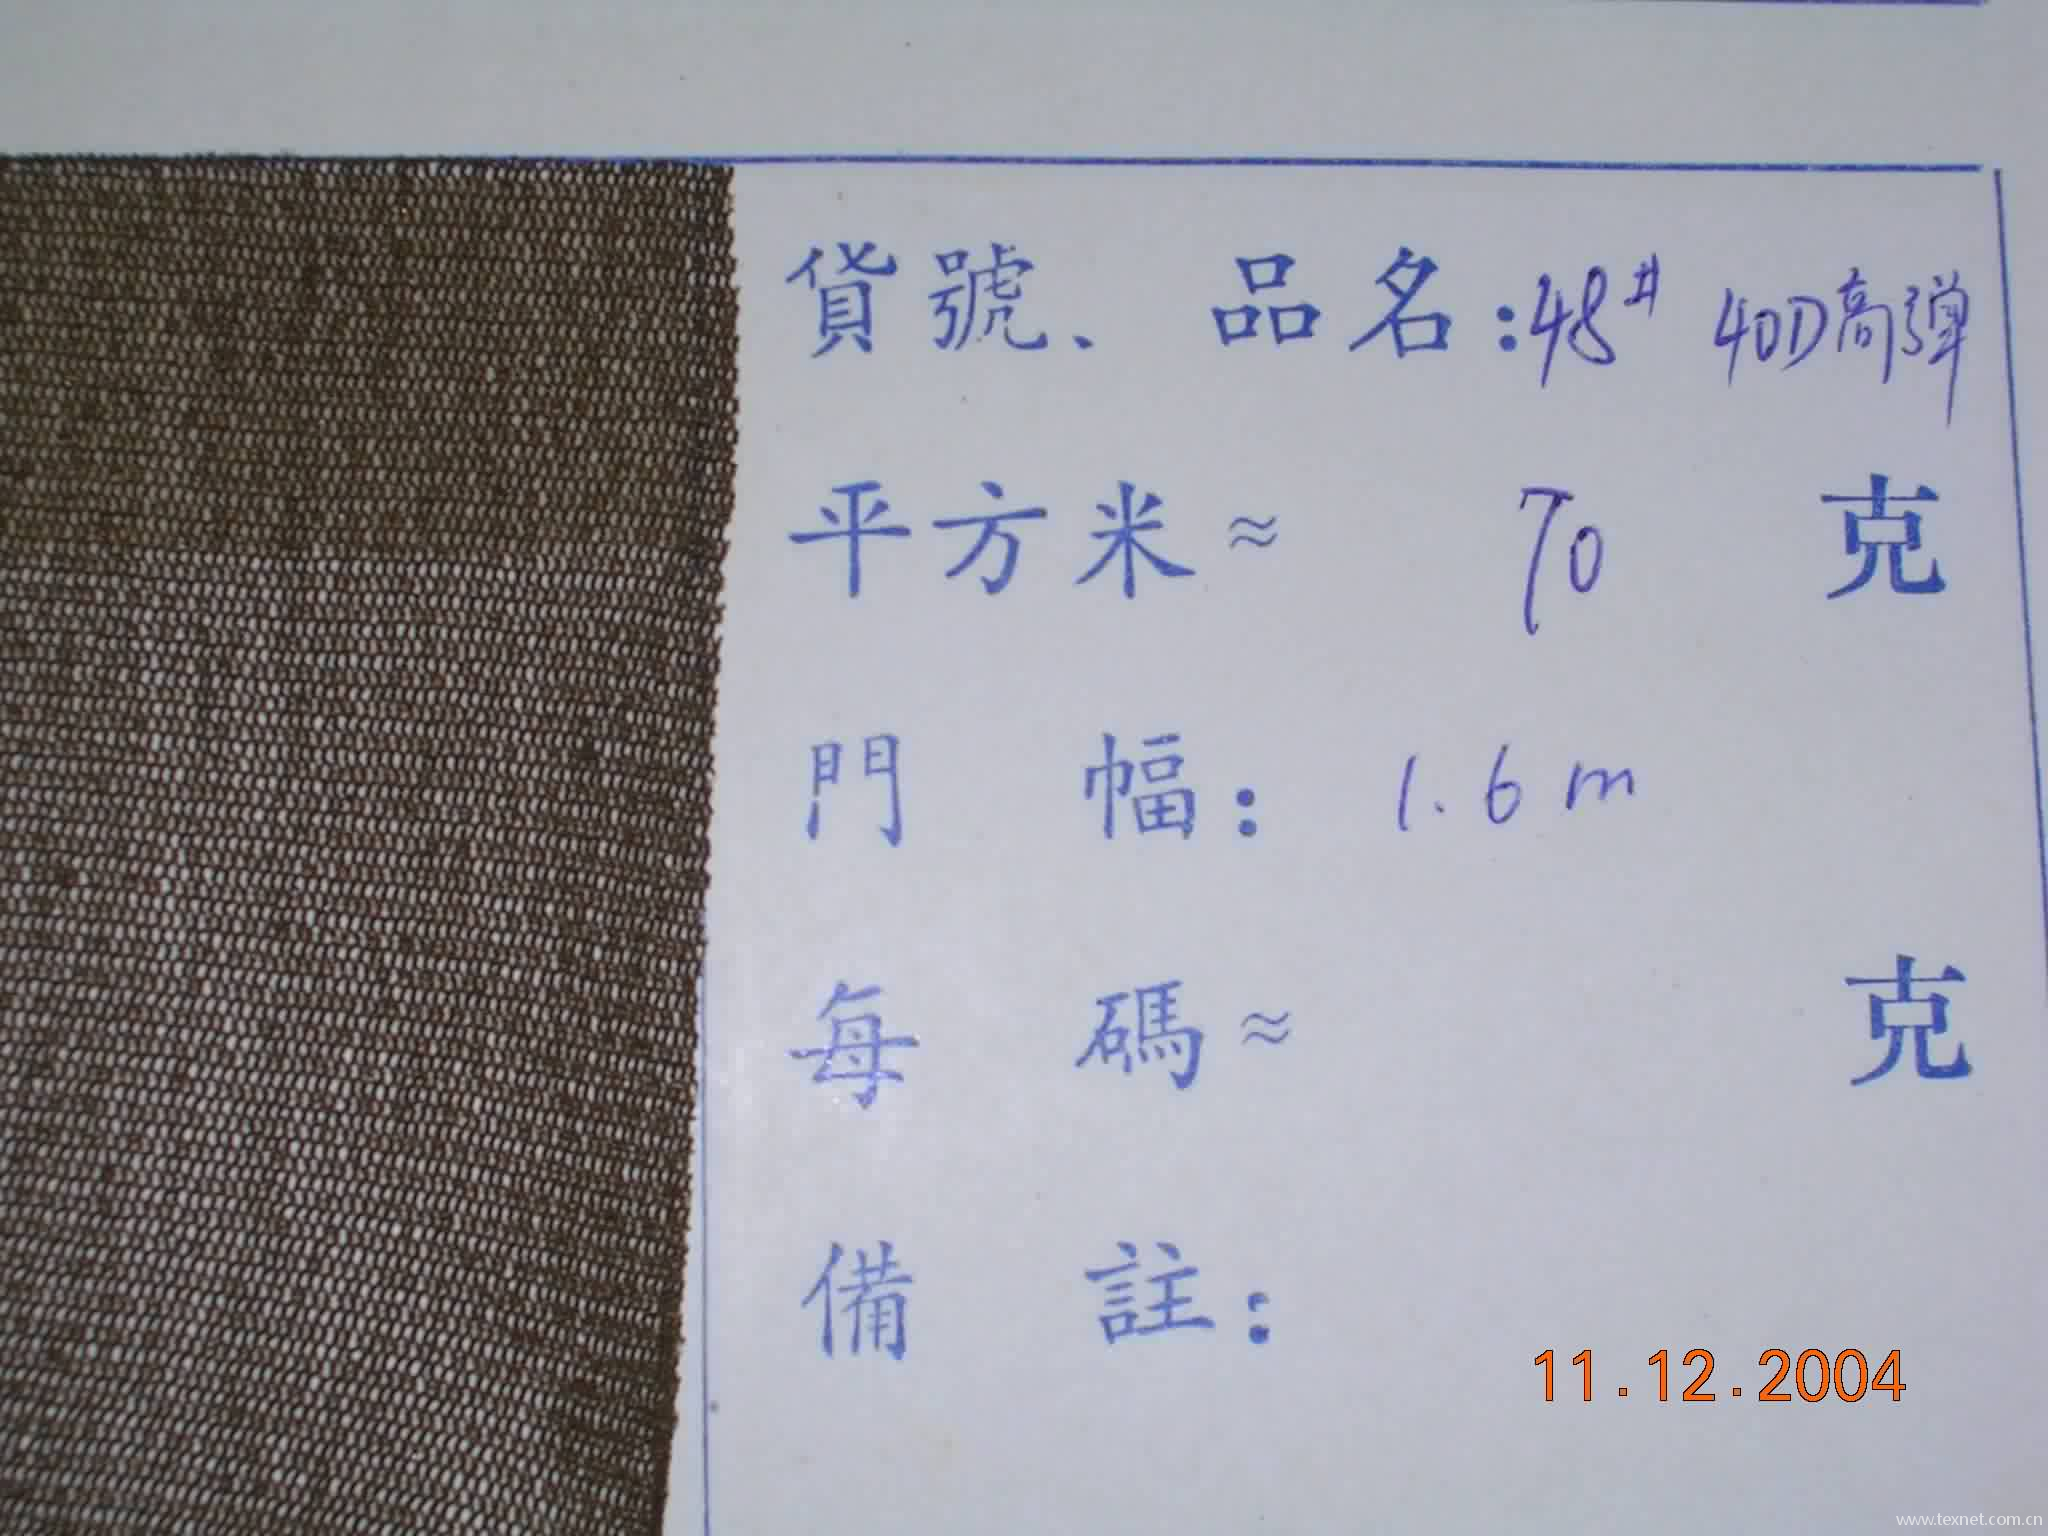 貨號、品名：48# 40D高弹
平方米≈ 70 克
門幅：1.6m
每碼≈ 克
備註：
11.12.2004
www.texnet.com.cn